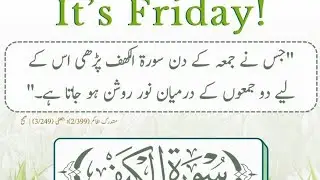 It's Friday!
"جس نے جمعہ کے دن سورۃ الکھف پڑھی اس کے
لیے دو جمعوں کے درمیان نور روشن ہو جاتا ہے۔"
(3/249) (2/399)
سورة الكهف